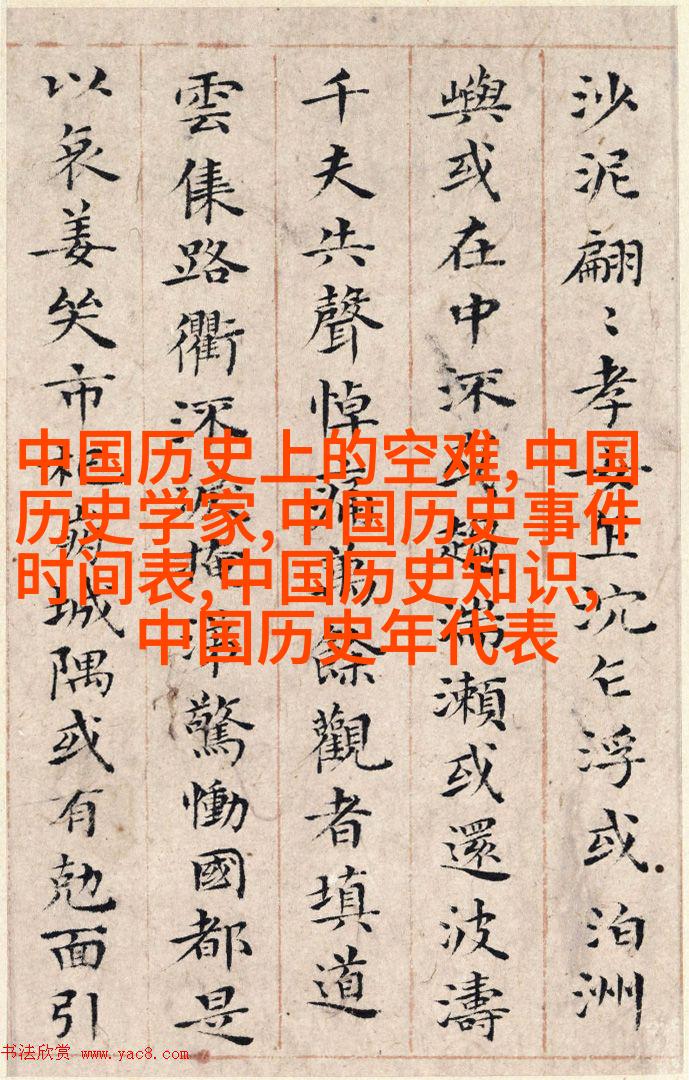 沙泥翩〻孝女乍沉乍浮或泊洲
嶼或在中深或趨湍瀨或還波濤
千夫失聲悼痛萬餘觀者填道
雲集路衢流淚掩涕驚慟國都是
以哀姜哭市杞崩城隅或有勊面引
中国历史上的空难,中国
历史学家,中国历史事件
时间表,中国历史知识,
中国历史年代表
书法欣赏 www.yac8.com